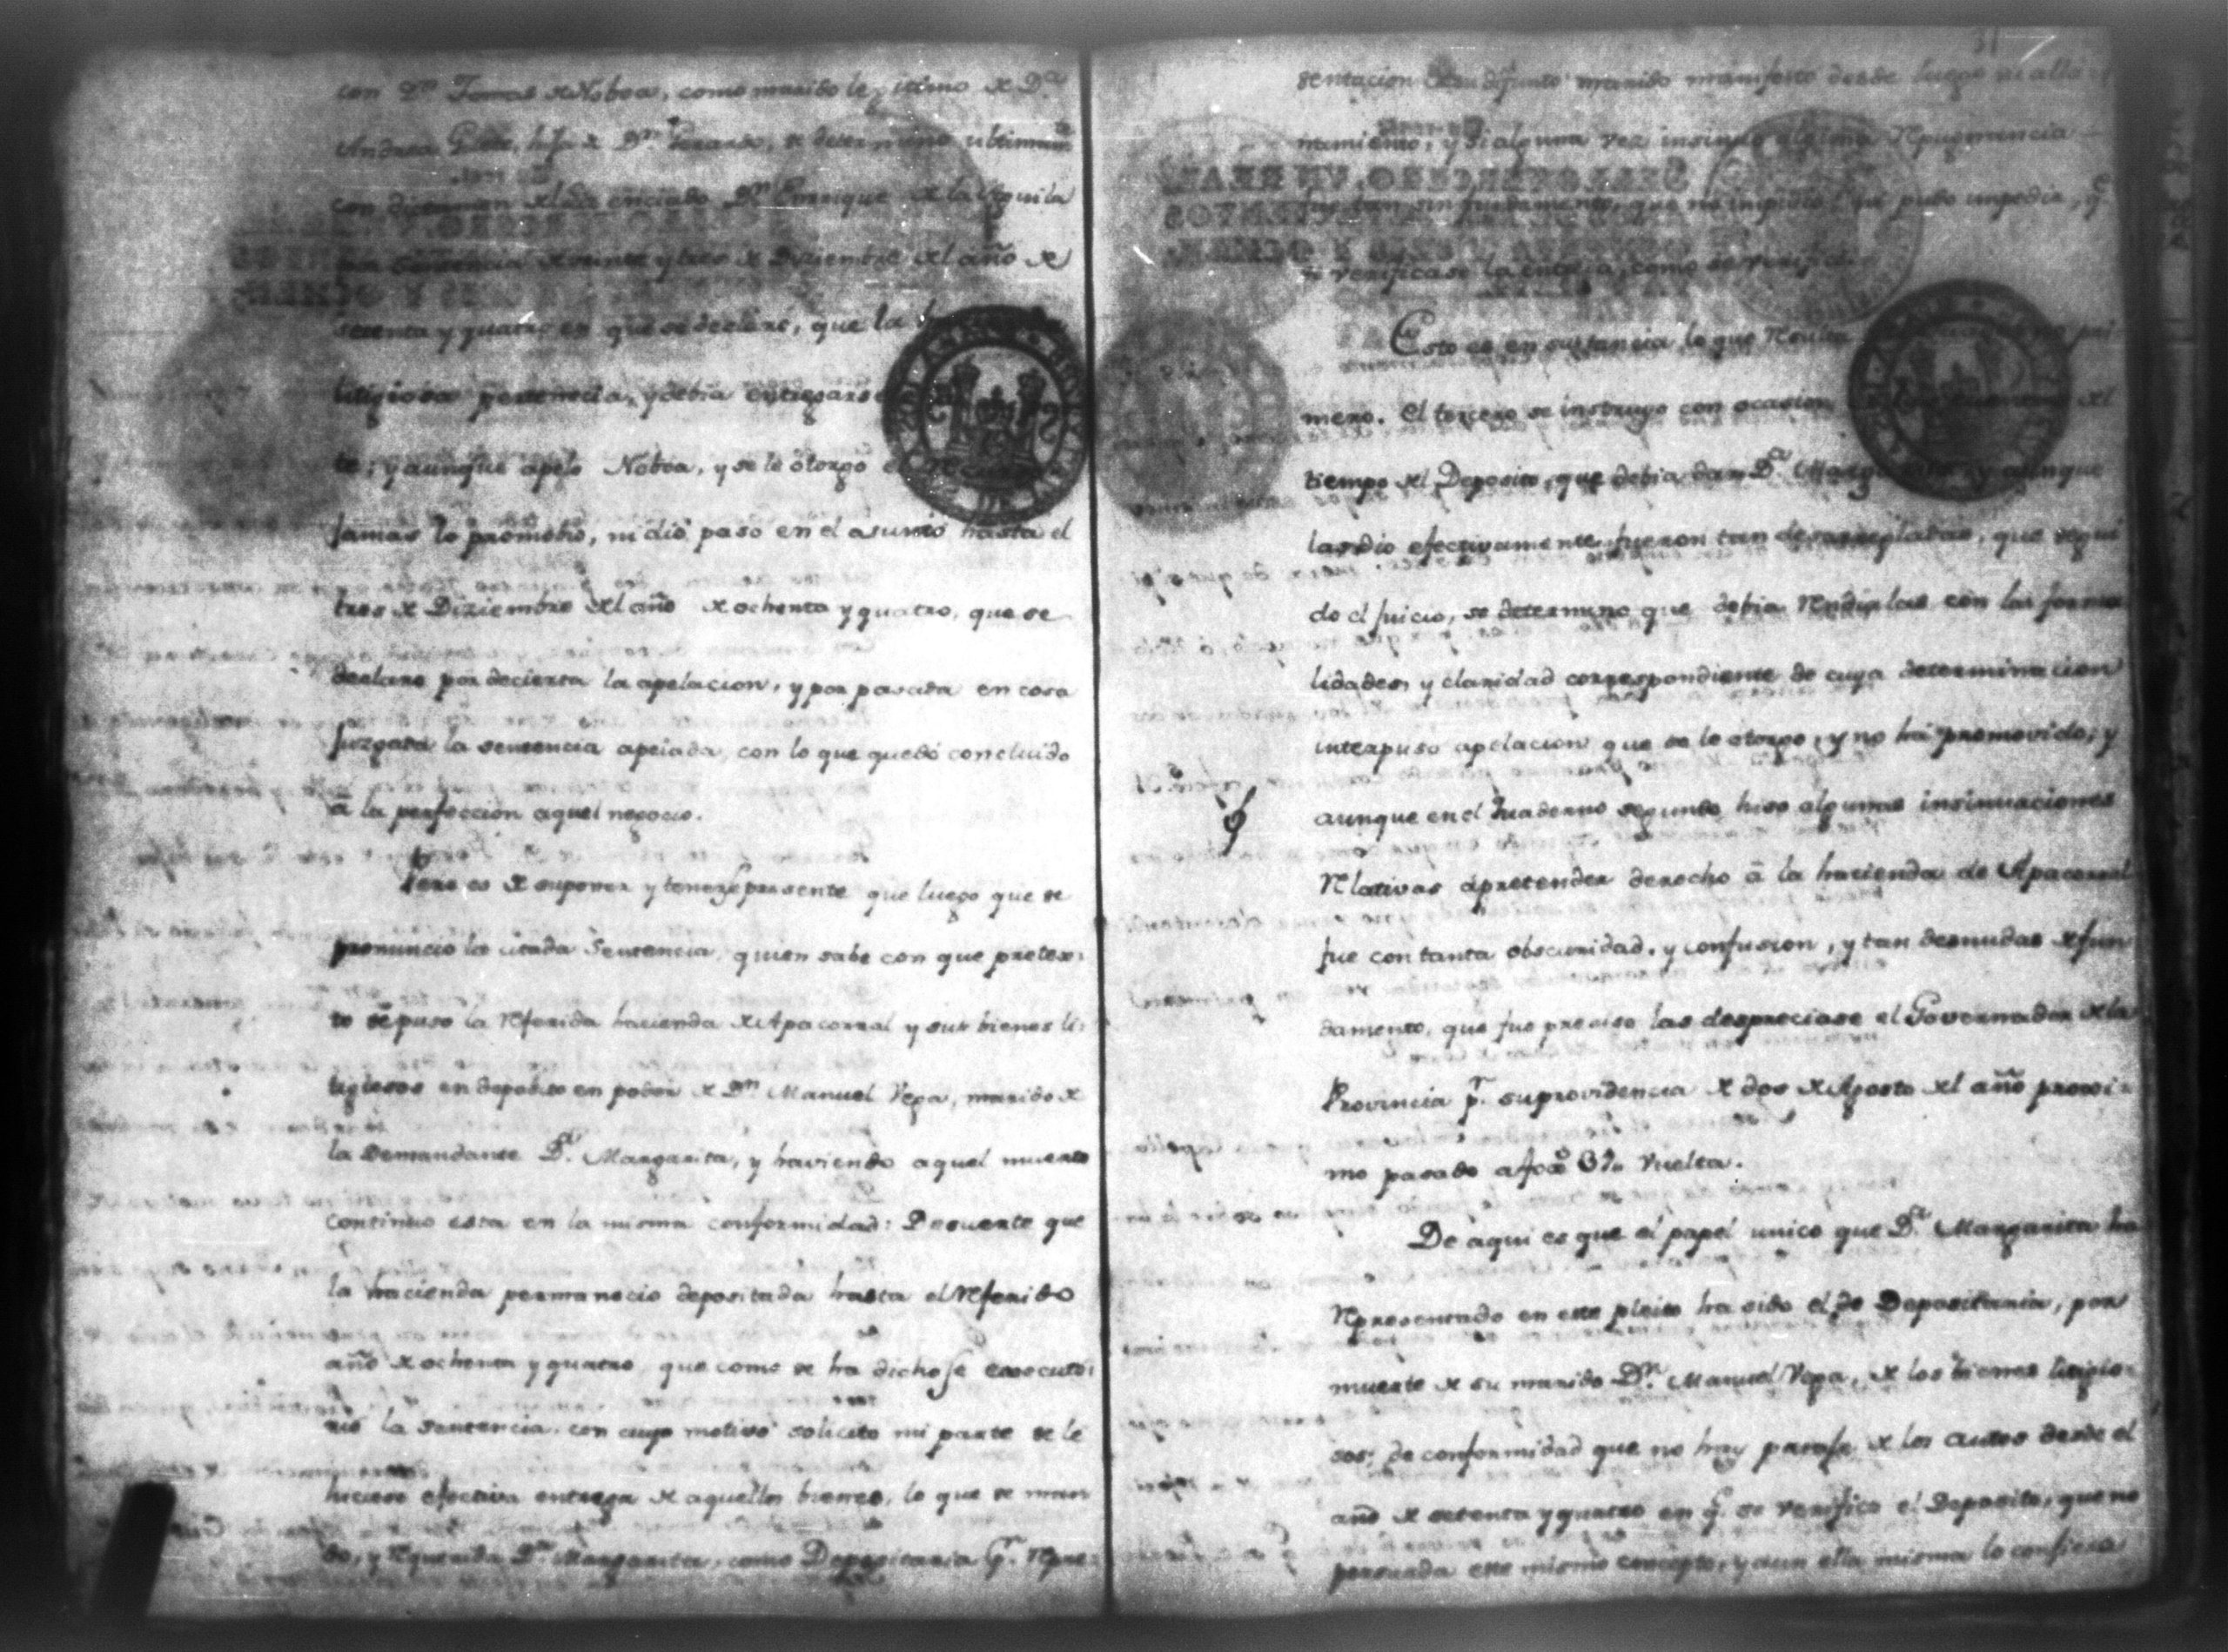 con Dn Tomas de Noboa, como marido legitimo de Da
Andrea hija de Dn Gerardo, se determino ultimam
con dictamen del Licenciado Dn Enrique de la Aguila
por Sentencia de veinte y tres de Diziembre del año de
setenta y quatro en que se declaró, que la
litigiosa pertenecia, y debia entregarse
te; y aunque apelo Noboa, y se le otorgo el
jamas lo promobio, ni dió paso en el asunto hasta el
tres de Diziembre del año de ochenta y quatro, que se
declaro por decierta la apelacion, y por pasada en cosa
juzgada la sentencia apelada, con lo que quedó concluido
â la perfeccion aquel negocio.
Pero es de suponer y tenerse presente que luego que se
pronuncio la citada Sentencia, quien sabe con que pretex-
to se puso la Referida hacienda de Apacorral y sus bienes li-
tigiosos en deposito en poder de Dn Manuel Vega, marido de
la Demandante Da. Margarita, y haviendo aquel muerto
continuo esta en la misma conformidad: De suerte que
la hacienda permanecio depositada hasta el Referido
año de ochenta y quatro, que como se ha dicho se executo-
rió la sentencia, con cuyo motivo solicito mi parte se le
hiciese efectiva entrega de aquellos bienes, lo que se man
do, y Requerida Da. Margarita, como Depositaria pr. Repre-
31
sentacion de su difunto marido manifesto desde luego su alla-
namiento, y si alguna vez insinuo alguna Repugnancia
fue tan sin fundamento, que no impidio, ni pudo impedir, qe
se verificase la entrega, como se verificó.
Esto es en sustancia lo que Resulta pri
mero. El tercero se instruyo con ocasion del
tiempo del Deposito, que debia dar Da. Margarita, y aunque
las dio efectivamente fueron tan desarregladas, que segui
do el juicio, se determino que debia Rendirlas con las forma
lidades, y claridad correspondiente de cuya determinacion
interpuso apelacion que se le otorgo, y no ha promovido; y
aunque en el Quaderno segundo hiso algunas insinuaciones
Relativas á pretender derecho â la hacienda de Apacorral
fue con tanta obscuridad, y confusion, y tan desnudas de fun
damento, que fue preciso las despreciase el Governador de la
Provincia pr. su providencia de dos de Agosto del año proxi-
mo pasado a foxs 37 vuelta.
De aqui es que el papel unico que Da. Margarita ha
Representado en este pleito ha sido el de Depositaria, por
muerte de su marido Dn. Manuel Vega, de los bienes litigio-
sos; de conformidad que no hay pasage de los autos desde el
año de setenta y quatro en q. se verifico el Deposito, que no
persuada este mismo concepto, y aun ella misma lo confiesa